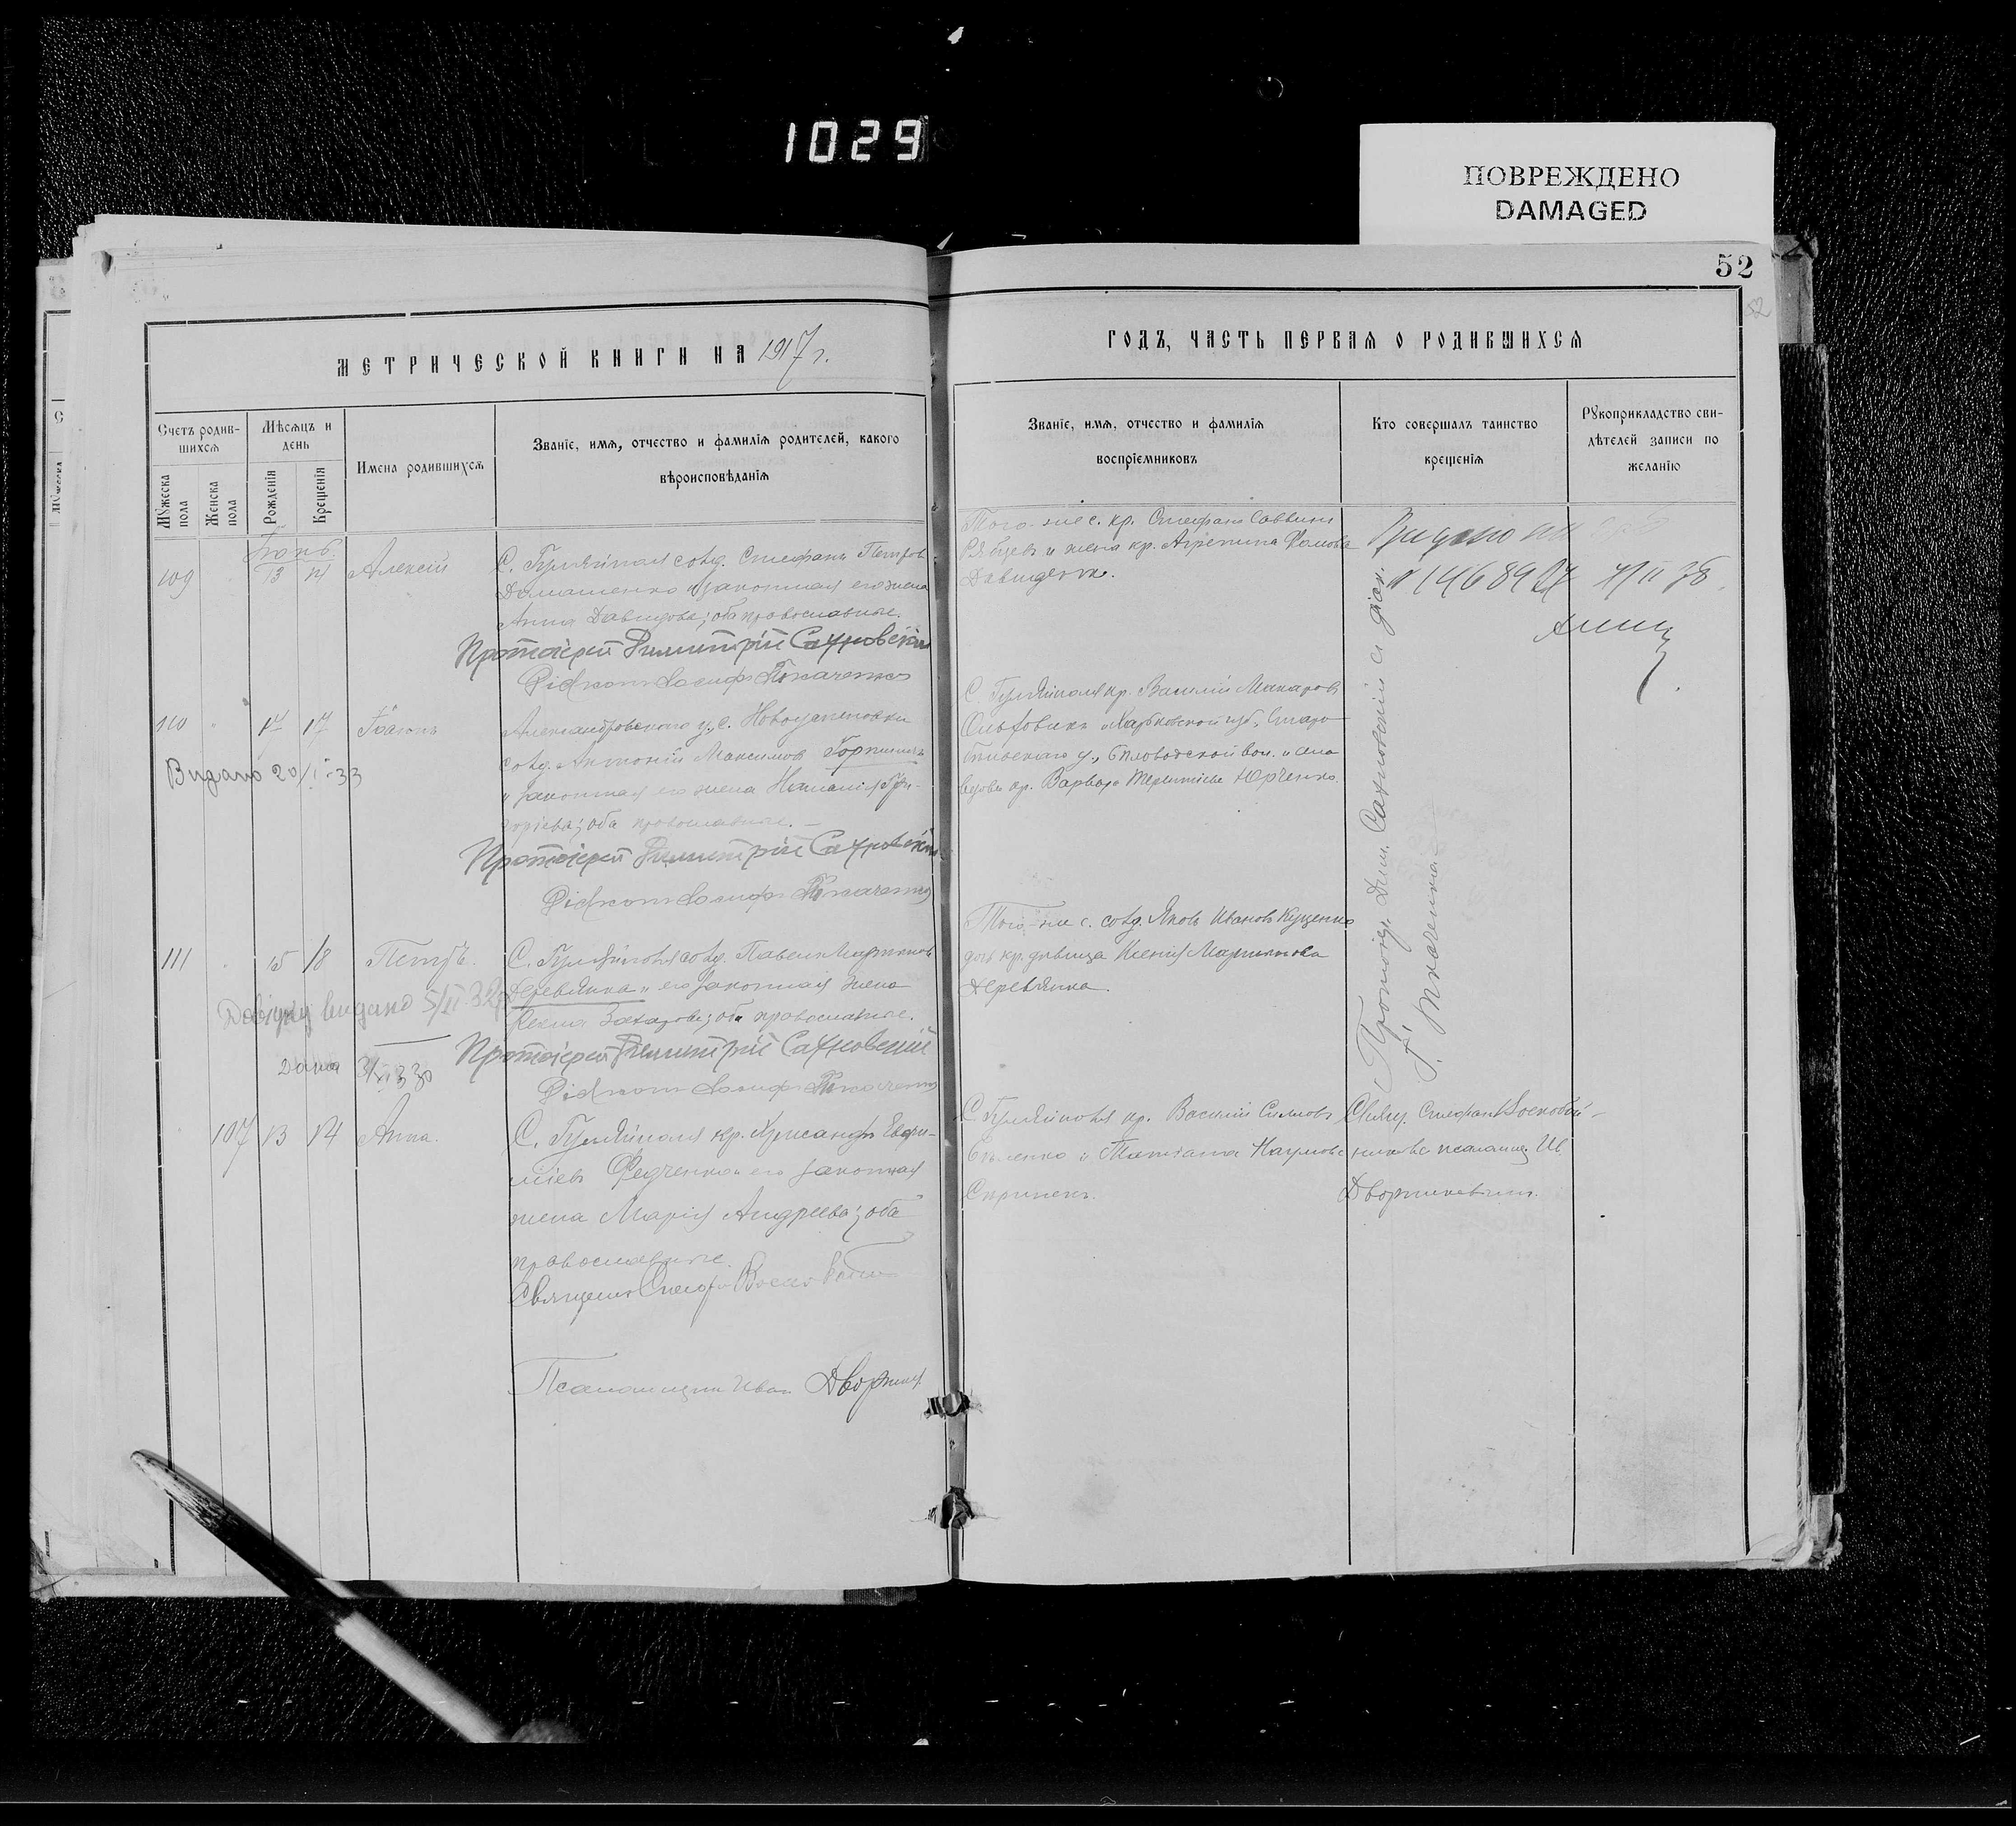 1029
ПОВРЕЖДЕНО
DAMAGED
52
52
МЕТРИЧЕСКОЙ КНИГИ НА 1917 г.
ГОДЪ, ЧАСТЬ ПЕРВАЯ О РОДИВШИХСЯ
Счетъ родив-
шихся
Мужеска
пола
Женска
пола
Мѣсяцъ и
день
Рожденія
Крещенія
Имена родившихся
Званіе, имя, отчество и фамилія родителей, какого
вѣроисповѣданія
Званіе, имя, отчество и фамилія
воспріемниковъ
Кто совершалъ таинство
крещенія
Рукоприкладство сви-
дѣтелей записи по
желанію
109
13 14
Алексій
С. Гуляйполя солд. Стефанъ Петровъ
Домашенко и законная его жена
Анна Давидова; оба православные.
Протоіерей Димитрій Сахновскій
Діаконъ Іосифъ Ткаченко
Того-же с. кр. Стефанъ Саввинъ
Рябцевъ и жена кр. Агрепина Фомова
Давиденко.
Видано
№ 1468927 4/II 38
110
14 17
Іоаннъ
Видано 20/I-33
Александровскаго у., с. Новоуспеновки
солд. Антоній Максимовъ Горпиничъ
и законная его жена Наталія Гри-
горіева; оба православные.
Протоіерей Димитрій Сахновскій
Діаконъ Іосифъ Ткаченко
С. Гуляйполя кр. Василій Макаровъ
Харьковской губ., Старо-
бѣльскаго у., Бѣловодской вол. и сло
кр. Варвара Терентіева Юрченко.
Протоіер. Дим. Сахновскій съ діак.
І. Ткаченкомъ
111
15 18
Петръ.
Довідку видано 5/II 32
С. Гуляйполя солд. Павелъ Мартиновъ
Деревянка и его законная жена
Захарова; оба православные.
Протоіерей Димитрій Сахновскій
Діаконъ Іосифъ Ткаченко
Того-же с. солд. Яковъ Ивановъ Куценко
дочь кр. дѣвица Ксенія Мартинова
Деревянка.
107 13 14
Анна.
С. Гуляйполя кр. Хрисанфъ Евфи-
міевъ Федченко и его законная
жена Марія Андреева; оба
православные.
Священ. Стефанъ
Псаломщикъ Иванъ Дворник
С. Гуляйполя кр. Василій Симновъ
Бѣленко и Татіана Наумова
Скрипекъ.
Свящ. Стефанъ Воскобой-
никовъ псаломщ. Ив.